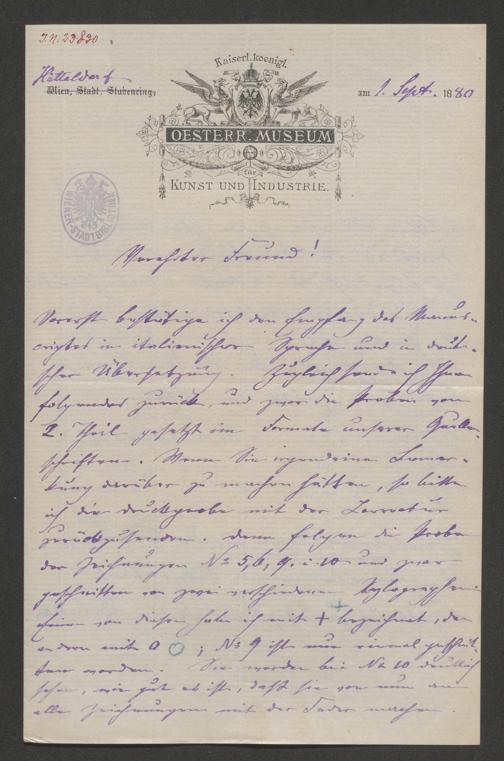 I.N. 23830.
Hütteldorf
Wien, Stadt, Stubenring,
Kaiserl. koenigl.
am 9. Sept. 1880
OESTERR. MUSEUM
für
KUNST UND INDUSTRIE.
WIENER STADTBIBLIOTHEK
Verehrter Freund!
Vorerst bestätige ich den Empfang des Manus-
criptes in italienischer Sprache und in deut-
scher Übersetzung. Zugleich sende ich Ihnen
folgendes zurück, und zwar die Proben vom
2. Theil gesetzt im Formate unserer Quellen-
schriften. Wenn Sie irgendeine Bemer-
kung darüber zu machen hätten, so bitte
ich die Druckprobe mit der Correctur
zurückzusenden. Dann folgen die Probe
der Zeichnungen No 5, 6, 9. i 10 und zwar
geschnitten von zwei verschiedenen Xylographen.
Einen von diesen habe ich mit + bezeichnet, den
andern mit O; No 9 ist nur einmal geschnit-
ten worden. Sie werden bei No 10 deutlich
sehen, wie gut es ist, daß sie von nun an
alle Zeichnungen mit der Feder machen.